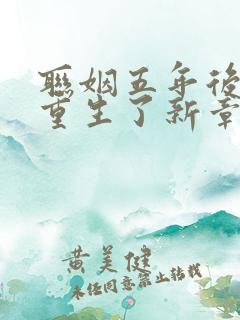 聯姻五年後
重生了新章
黄美健
未经同意禁止转载